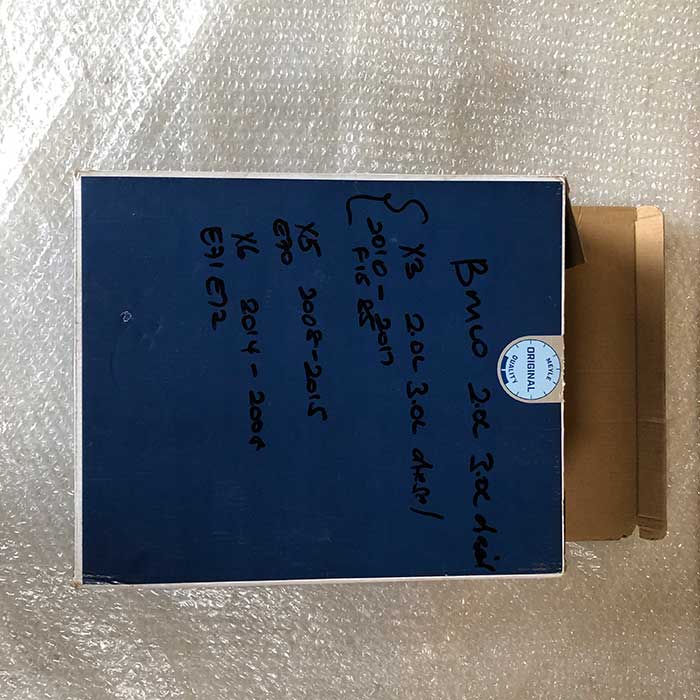 BMW 2.0L 3.0L diesel
X3 2.0L 3.0L diesel
2010-2017
X5 2008-2015
E70
X6 2014-2008
E71 E72
MEYLE
ORIGINAL
QUALITY